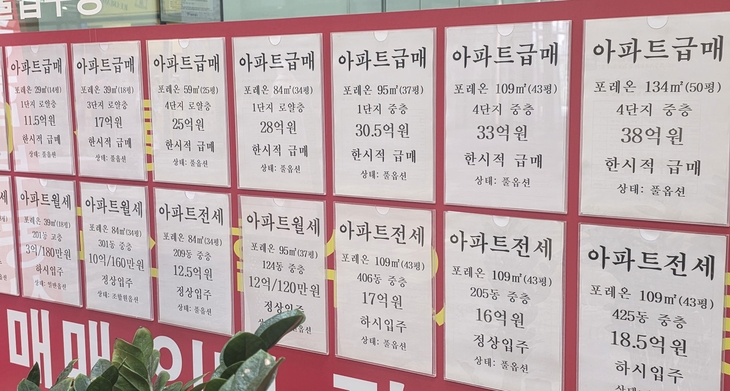 아파트급매
포레온 29㎡(14평)
1단지 로얄층
11.5억원
한시적 급매
상태: 풀옵션
아파트급매
포레온 39㎡(18평)
3단지 로얄층
17억원
한시적 급매
상태: 풀옵션
아파트급매
포레온 59㎡(25평)
4단지 로얄층
25억원
한시적 급매
상태: 풀옵션
아파트급매
포레온 84㎡(34평)
1단지 로얄층
28억원
한시적 급매
상태: 풀옵션
아파트급매
포레온 95㎡(37평)
1단지 중층
30.5억원
한시적 급매
상태: 풀옵션
아파트급매
포레온 109㎡(43평)
4단지 중층
33억원
한시적 급매
상태: 풀옵션
아파트급매
포레온 134㎡(50평)
4단지 중층
38억원
한시적 급매
상태: 풀옵션
아파트월세
포레온 39㎡(18평)
201동 고층
3억/180만원
하시입주
아파트월세
포레온 84㎡(34평)
301동 중층
10억/160만원
정상입주
상태: 조합원옵션
아파트전세
포레온 84㎡(34평)
209동 중층
12.5억원
정상입주
상태: 풀옵션
아파트월세
포레온 95㎡(37평)
124동 중층
12억/120만원
정상입주
아파트전세
포레온 109㎡(43평)
406동 중층
17억원
하시입주
상태: 풀옵션
아파트전세
포레온 109㎡(43평)
205동 중층
16억원
정상입주
상태: 풀옵션
아파트전세
포레온 109㎡(43평)
425동 중층
18.5억원
하시입주
매매